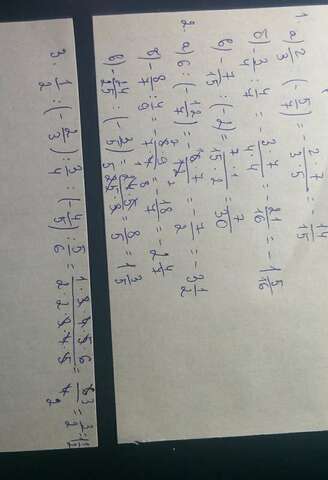 1. а) 2/3 : (-5/7) = -2·7/3·5 = -14/15
б) -3/4 : 4/7 = -3·7/4·4 = -21/16 = -1 5/16
в) -7/15 : (-2) = 7·1/15·2 = 7/30
2. а) 6 : (-12/7) = -6·7/12 = -7/2 = -3 1/2
б) -8/7 : 4/9 = -8·9/7·4 = -18/7 = -2 4/7
в) -24/25 : (-3/5) = 24·5/25·3 = 8/5 = 1 3/5
3. 1/2 : (-2/3) : 3/4 : (-4/5) : 5/6 = 1·3·4·5·6/2·2·3·4·5 = 6/4 = 3/2 = 1 1/2